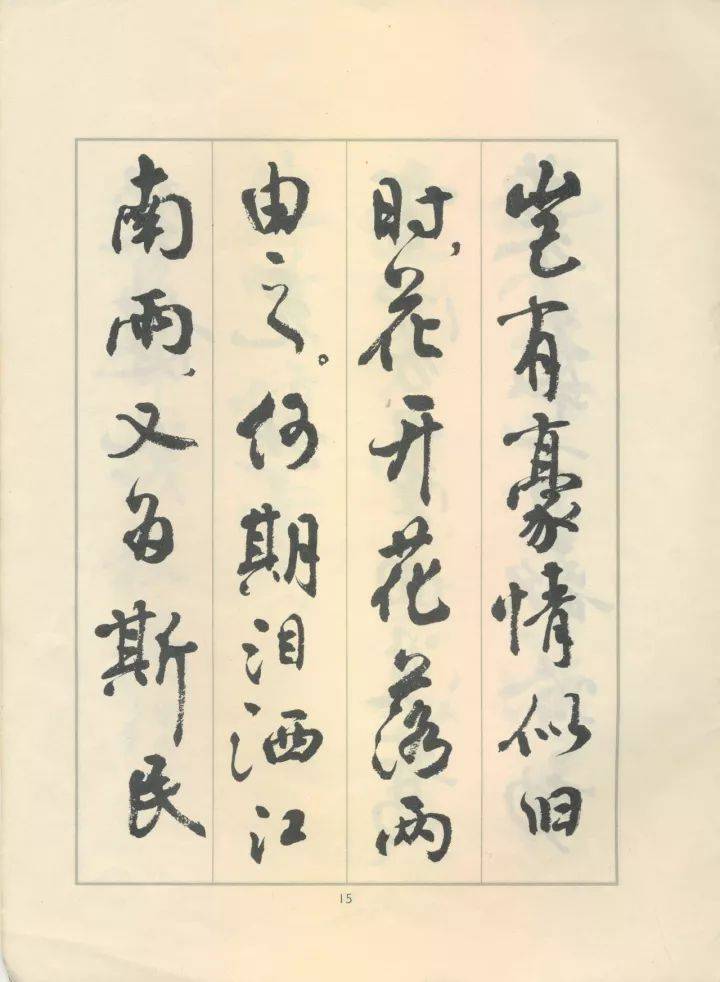 岂有豪情似旧
时,花开花落两
由之。何期泪洒江
南雨,又为斯民
15